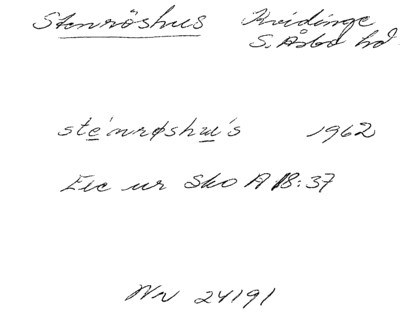 Stenröshus Kvidinge
S. Åsbo hd
ste´nrøshu´s 1962
Exc ur Sko A 18:37
Nr 24191